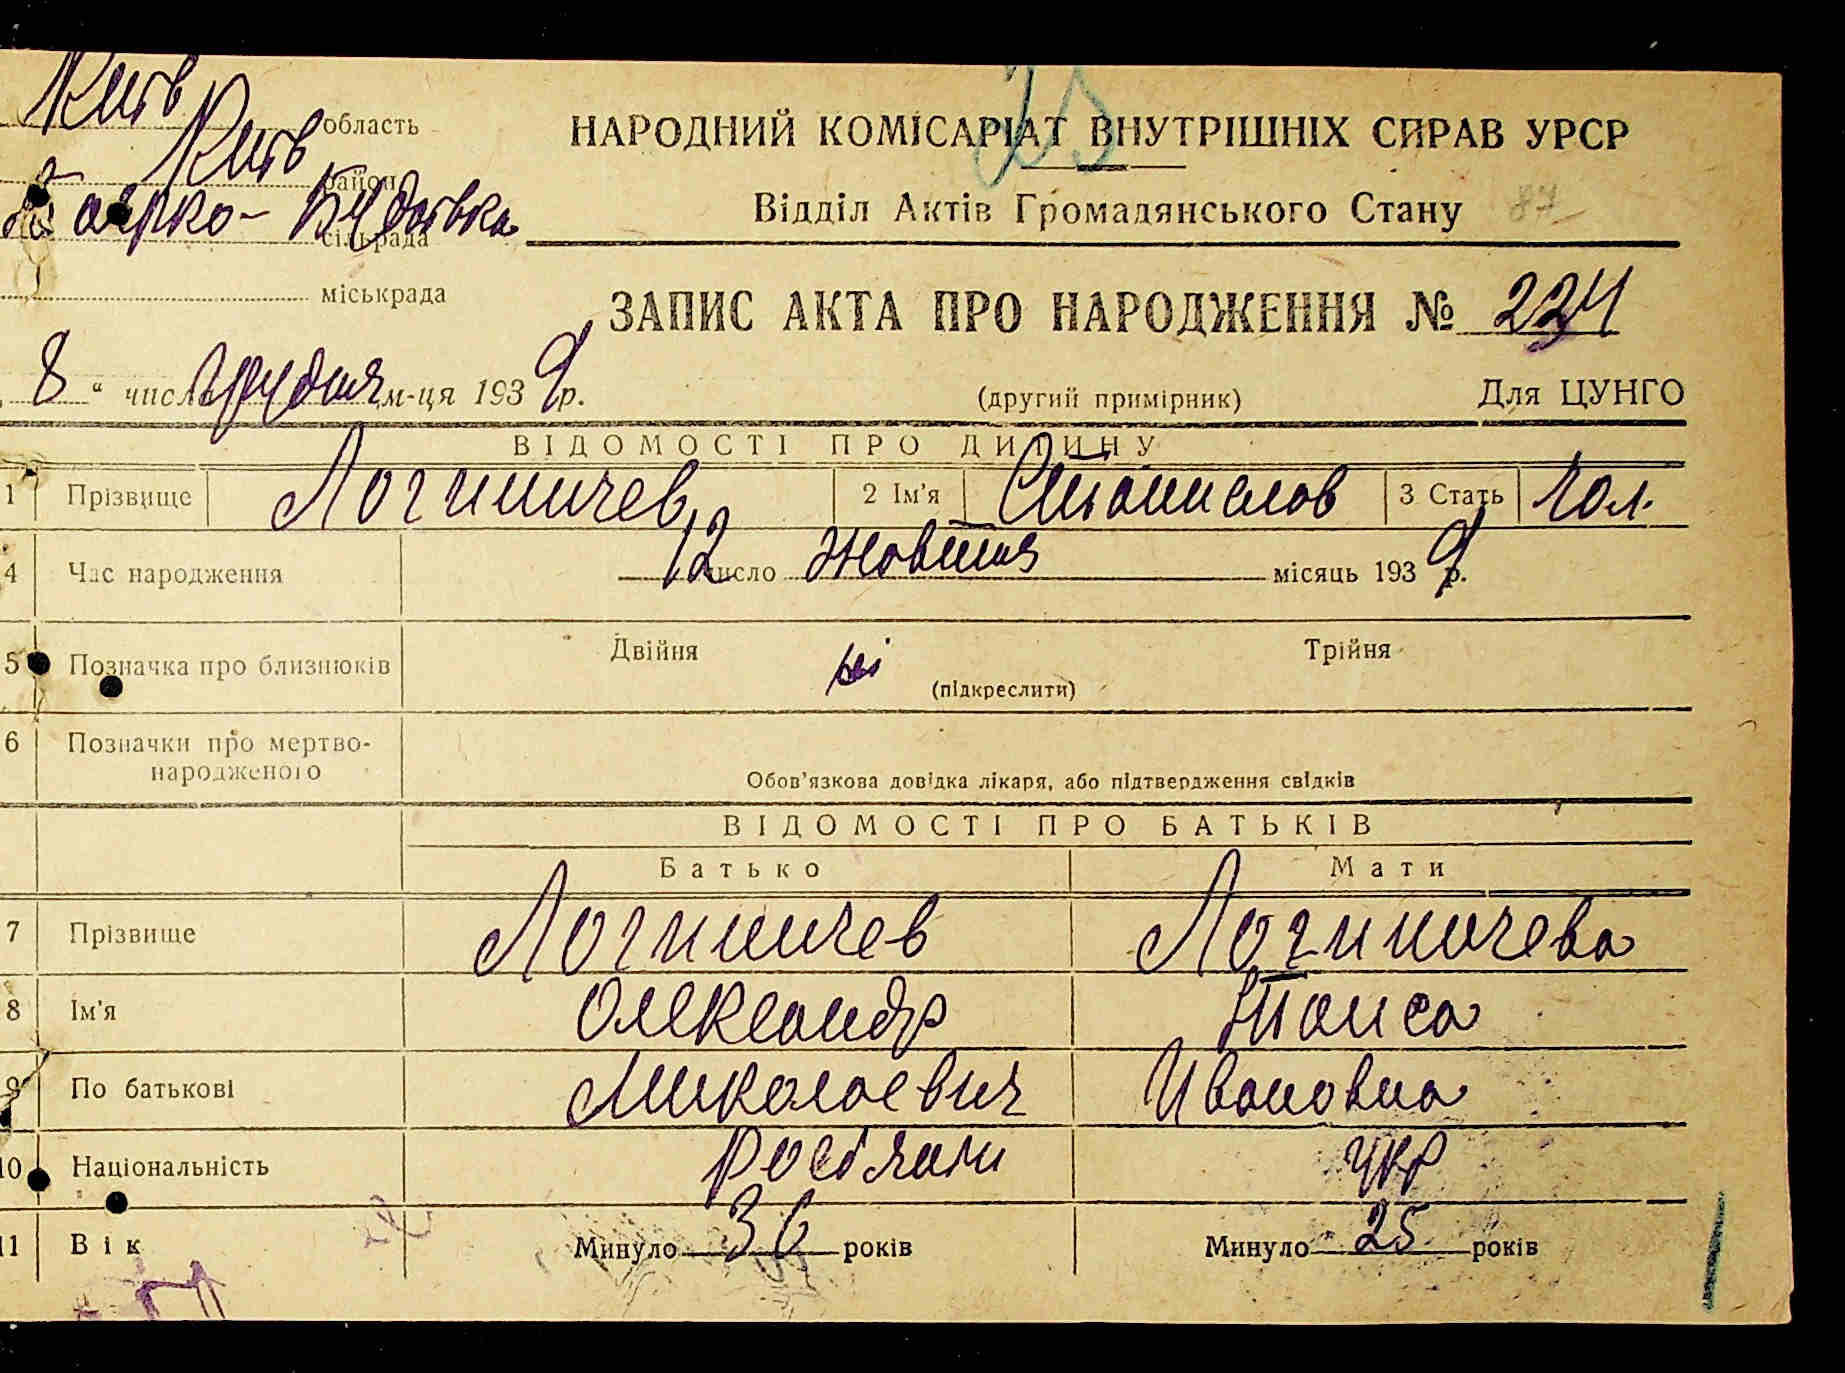 Київ область
Київ район
Боярко-Будаівка сільрада
міськрада
23
НАРОДНИЙ КОМІСАРІАТ ВНУТРІШНІХ СПРАВ УРСР
Відділ Актів Громадянського Стану 87
ЗАПИС АКТА ПРО НАРОДЖЕННЯ № 234
8 " число грудня м-ця 1939 р. (другий примірник) Для ЦУНГО
ВІДОМОСТІ ПРО ДИТИНУ
1 Прізвище Логиничев 2 Ім'я Станислав 3 Стать Чол.
4 Час народження 12 число жовтня місяць 1939 р.
5 Позначка про близнюків Двійня ні Трійня
(підкреслити)
6 Позначки про мертво-
народженого
Обов'язкова довідка лікаря, або підтвердження свідків
ВІДОМОСТІ ПРО БАТЬКІВ
Батько Мати
7 Прізвище Логиничев Логиничева
8 Ім'я Олександр Таиса
9 По батькові Миколаевич Ивановна
10 Національність Росіянин Укр
11 Вік Минуло 36 років Минуло 25 років